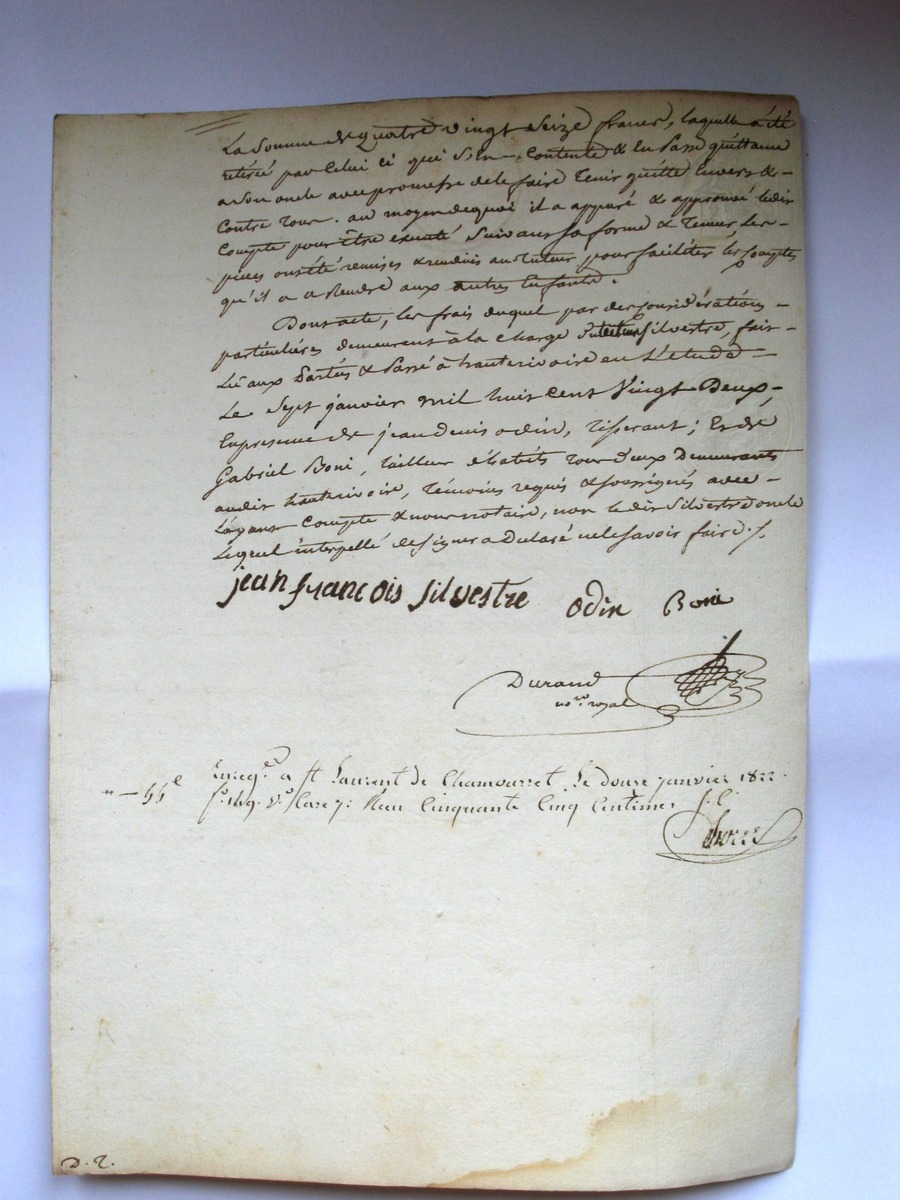 La Somme de Quatre vingt Seize francs, laquelle a été
retirée par Celui ci qui S'en Contente & En Passe quittance
a Son oncle avec promesse de le faire Tenir quitte Envers &
Contre Tous. au moyen de quoi il a appuré & approuvé ledit
Compte pour être executé Suivant Sa forme & Teneur, Les
pieces ont été remises & rendues au Tuteur pour faciliter les Comptes
qu'il a a Rendre aux autres Enfants.
Dont acte, les frais duquel par des Considérations
particulières demeurent à la charge Silvestre, fait
Lû aux Parties & Passé à hauterivoire en L'étude
Le Sept janvier mil huit cent Vingt Deux,
En presence de jean Denis odin, Tisserant; Et de
Gabriel Boni, Tailleur d'habits Tous Deux Demeurants
audit hauterivoire, Témoins requis & soussignés avec
L'ayant Compte & nous notaire, non le dit Silvestre oncle
Lequel interpellé de signer a Declaré ne le savoir faire ./.
jean françois silvestre odin Boni
Durand
no.re royal
Enreg.é a St Laurent de Chamousset Le douze janvier 1822.
f.o 149. v.o Case 7: Reçu Cinquante Cinq Centimes
" — 55 c
D. T.